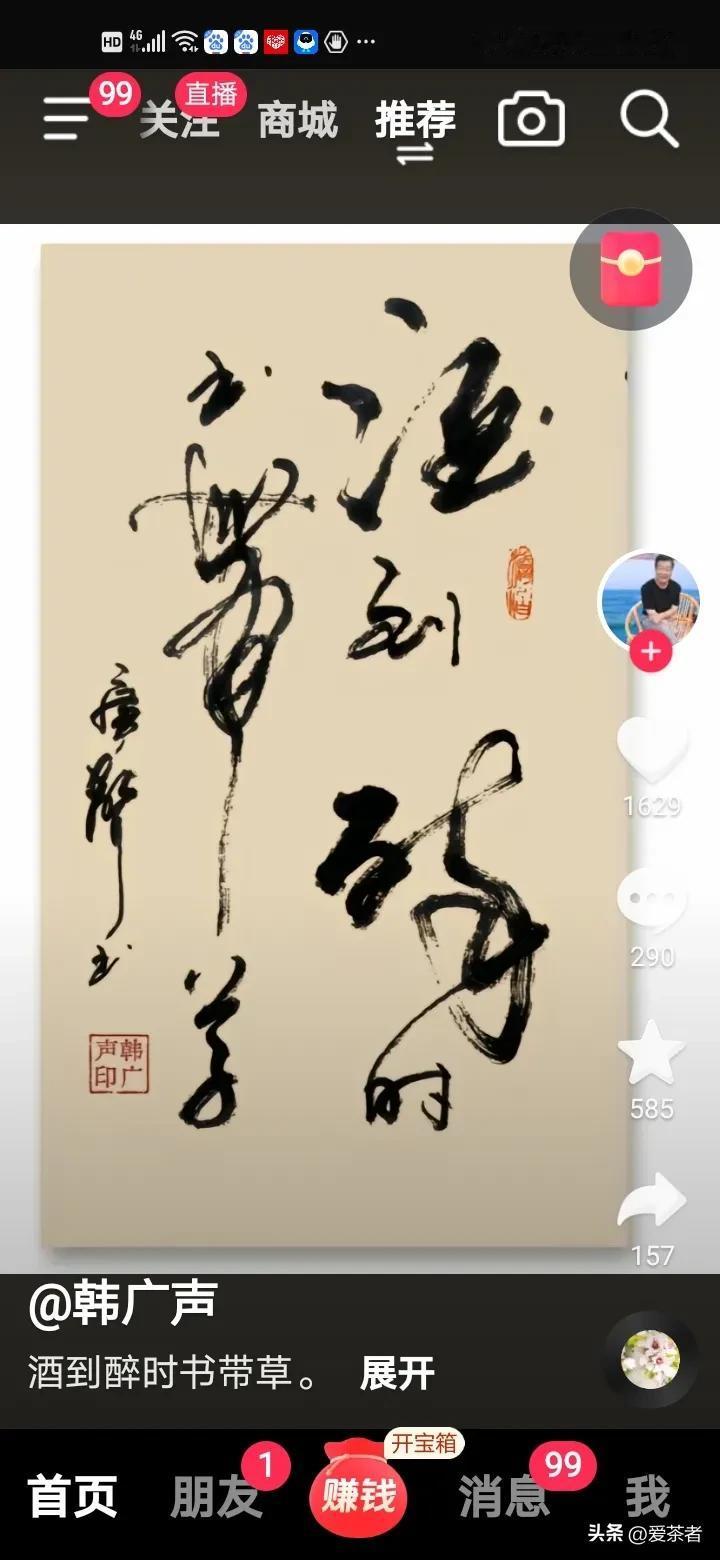 HD 4G
99
直播
关注 商城 推荐
酒到醉时
书带草
广声书
韩广声印
1629
290
585
157
@韩广声
酒到醉时书带草。 展开
开宝箱
1
99
首页 朋友 赚钱 消息 我
头条 @爱茶者